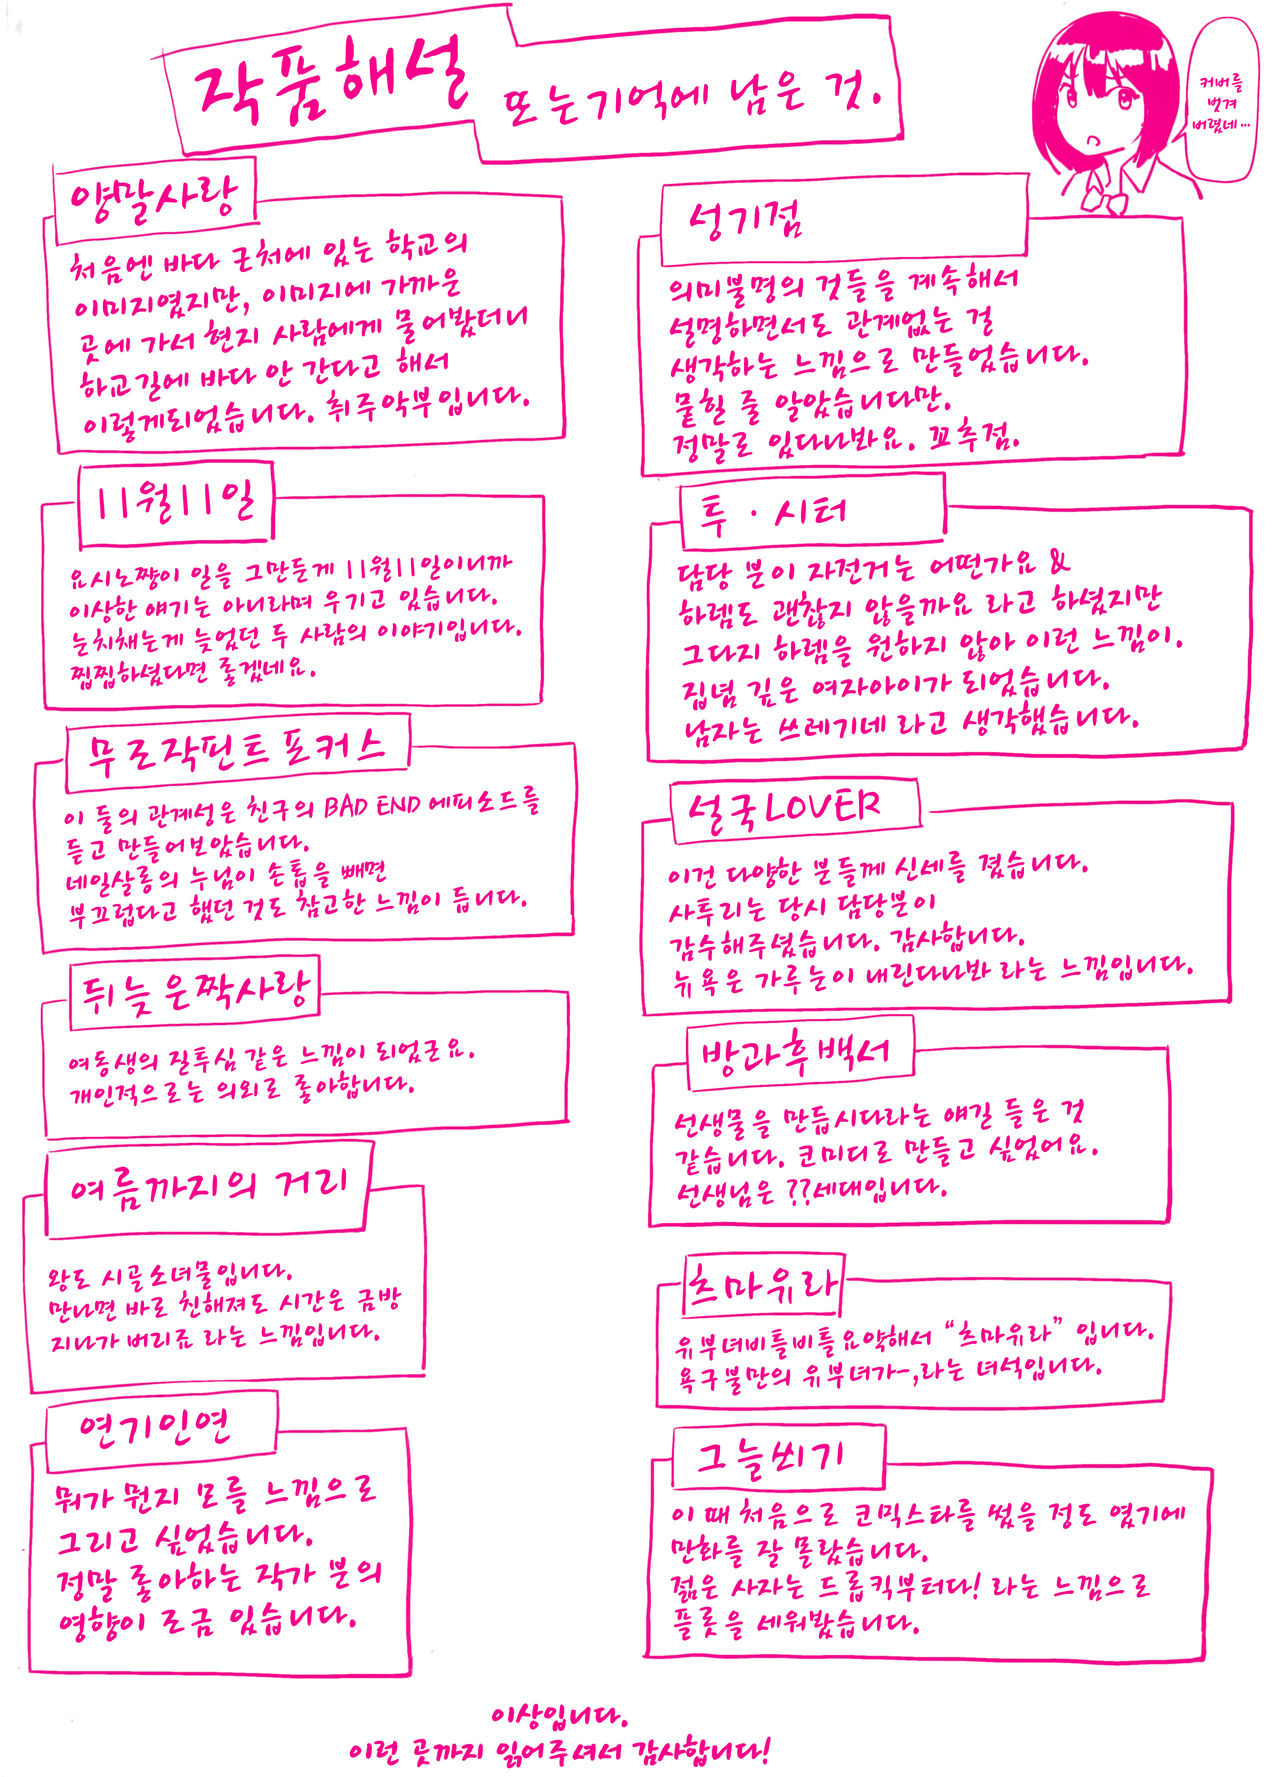 작품해설
또는기억에 남은 것.
커버를
벗겨
버렸네…
양말사랑
처음엔 바다 근처에 있는 학교의
이미지였지만, 이미지에 가까운
곳에 가서 현지 사람에게 물어봤더니
하교길에 바다 안 간다고 해서
이렇게되었습니다. 취주악부입니다.
11월11일
요시노쨩이 일을 그만둔게 11월11일이니까
이상한 얘기는 아니라며 우기고 있습니다.
눈치채는게 늦었던 두 사람의 이야기입니다.
찝찝하셨다면 좋겠네요.
무로작핀트포커스
이 둘의 관계성은 친구의 BAD END 에피소드를
듣고 만들어보았습니다.
네일살롱의 누님이 손톱을 빼면
부끄럽다고 했던 것도 참고한 느낌이 듭니다.
뒤늦은짝사랑
여동생의 질투심 같은 느낌이 되었군요.
개인적으로는 의외로 좋아합니다.
여름까지의 거리
왕도 시골소녀물입니다.
만나면 바로 친해져도 시간은 금방
지나가 버리죠 라는 느낌입니다.
연기인연
뭐가 뭔지 모를 느낌으로
그리고 싶었습니다.
정말 좋아하는 작가 분의
영향이 조금 있습니다.
성기점
의미불명의 것들을 계속해서
설명하면서도 관계없는 걸
생각하는 느낌으로 만들었습니다.
묻힐 줄 알았습니다만.
정말로 있다나봐요. 꼬추점.
투·시터
담당 분이 자전거는 어떤가요 &
하렘도 괜찮지 않을까요 라고 하셨지만
그다지 하렘을 원하지 않아 이런 느낌이.
집념 깊은 여자아이가 되었습니다.
남자는 쓰레기네 라고 생각했습니다.
설국LOVER
이건 다양한 분들께 신세를 졌습니다.
사투리는 당시 담당분이
감수해주셨습니다. 감사합니다.
뉴욕은 가루눈이 내린다나봐 라는 느낌입니다.
방과후백서
선생물을 만듭시다라는 얘길 들은 것
같습니다. 코미디로 만들고 싶었어요.
선생님은 ??세대입니다.
츠마유라
유부녀비틀비틀요약해서 "츠마유라" 입니다.
욕구불만의 유부녀가-,라는 녀석입니다.
그늘쐬기
이 때 처음으로 코믹스타를 썼을 정도 였기에
만화를 잘 몰랐습니다.
젊은 사자는 드롭킥부터다! 라는 느낌으로
플롯을 세워봤습니다.
이상입니다.
이런 곳까지 읽어주셔서 감사합니다!